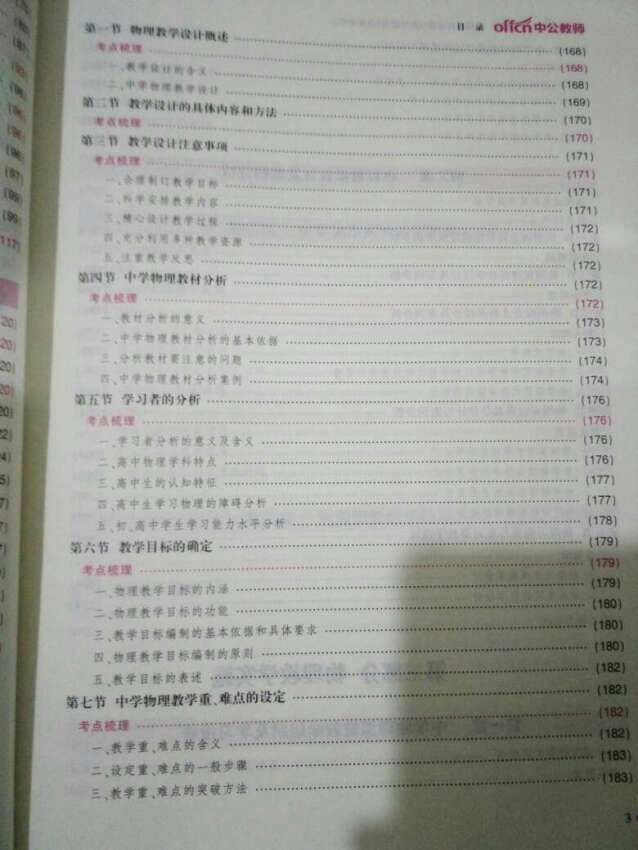 目 录 offcn中公教师
第一节 物理教学设计概述 (168)
考点梳理 (168)
一、教学设计的含义 (168)
二、中学物理教学设计 (169)
第二节 教学设计的具体内容和方法 (170)
考点梳理 (170)
第三节 教学设计注意事项 (171)
考点梳理 (171)
一、合理制订教学目标 (171)
二、科学安排教学内容 (171)
三、精心设计教学过程 (172)
四、充分利用多种教学资源 (172)
五、注重教学反思 (172)
第四节 中学物理教材分析 (172)
考点梳理 (172)
一、教材分析的意义 (173)
二、中学物理教材分析的基本依据 (173)
三、分析教材要注意的问题 (174)
四、中学物理教材分析案例 (174)
第五节 学习者的分析 (176)
考点梳理 (176)
一、学习者分析的意义及含义 (176)
二、高中物理学科特点 (176)
三、高中生的认知特征 (177)
四、高中生学习物理的障碍分析 (177)
五、初、高中学生学习能力水平分析 (178)
第六节 教学目标的确定 (179)
考点梳理 (179)
一、物理教学目标的内涵 (179)
二、物理教学目标的功能 (180)
三、教学目标编制的基本依据和具体要求 (180)
四、物理教学目标编制的原则 (180)
五、教学目标的表述 (182)
第七节 中学物理教学重、难点的设定 (182)
考点梳理 (182)
一、教学重、难点的含义 (182)
二、设定重、难点的一般步骤 (183)
三、教学重、难点的突破方法 (183)
3